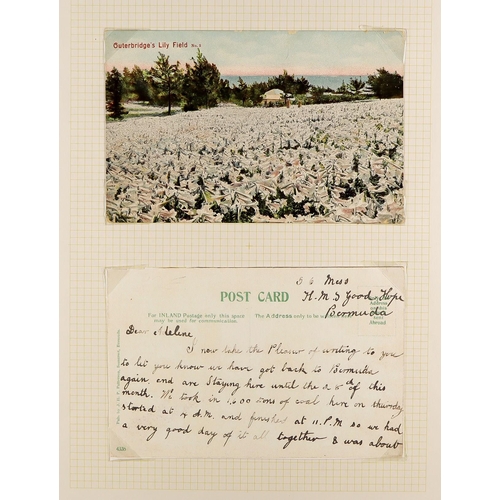 Outerbridge's Lily Field No. 3
Mess
POST CARD
H.M.S Good Hope
Bermuda
For INLAND Postage only this space may be used for communication.
The Address only to be
Address
Abroad
Dear Helene,
I now take the Pleasur of writing to you
to let you know we have got back to Bermuda
again and are Staying here until the 28th of this
month. We took in 1600 tons of coal here on thursday
started at 4 A.M. and finished at 11.P.M so we had
a very good day of it all together & was about